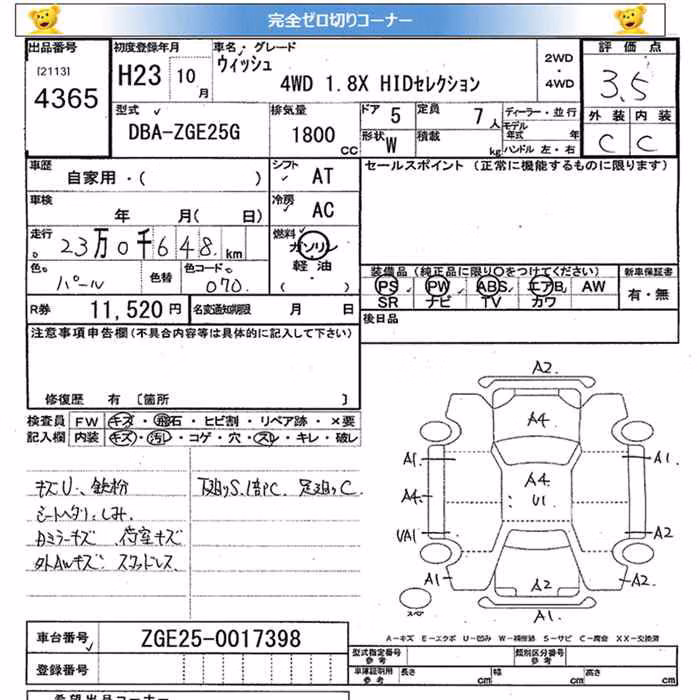 完全ゼロ切りコーナー
出品番号 初度登録年月 車名・グレード 2WD・4WD 評価点
[2113] 4365 H23 10月 ウィッシュ 3.5
4WD 1.8X HIDセレクション
型式 排気量 ドア 5 定員 7人 ディーラー・並行 外装 内装
DBA-ZGE25G 1800cc 形状 W 積載 kg モデル年式 年 C C
ハンドル 左・右
車歴 シフト セールスポイント (正常に機能するものに限ります)
自家用・( ) AT
車検 冷房
年 月( 日) AC
走行 23万0千648km 燃料 ガソリン・軽油・( )
色 パール 色替 色コード 070 装備品 (純正品に限り〇をつけてください) 新車保証書
PS PW ABS エアB AW 有・無
R券 11,520円 名変通知期限 月 日 SR ナビ TV カワ
注意事項申告欄(不具合内容等は具体的に記入して下さい) 後日品
修復歴 有 [箇所 ]
検査員 FW キズ・飛石・ヒビ割・リペア跡・×要
記入欄 内装 キズ・汚レ・コゲ・穴・スレ・キレ・破レ
キズU、鉄粉 下廻りS、錆PC、足廻りC
シートヘタリ、しみ
Aミラーキズ 荷室キズ
外AWキズ スタッドレス
A2
A4
A1 A1
A4 A4
U1
UA1 A2
A1 A2 A2
スペア A1
A-キズ E-エクボ U-凹み W-補修跡 S-サビ C-腐食 XX-交換済
車台番号 ZGE25-0017398
型式指定番号 参考 類別区分番号 参考
登録番号 車庫証明用 参考 長さ cm 幅 cm 高さ cm
希望出品コーナー